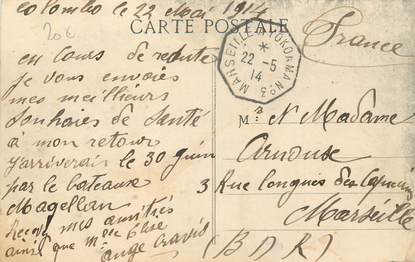 Colombo le 22 Mai 1914
CARTE POSTALE
20€
France
MARSEILLE A YOKOHAMA Nº3
22-5
14
en cours de
je vous envoies
mes meilleurs
de Santé
à mon retour
j'arriverais le 30 juin
par le bateaux
Magellan
mes amitiés
ainsi que Mme
ange
M: et Madame
Arnoux
3 Rue longues des Capucins
Marseille
(B D R)